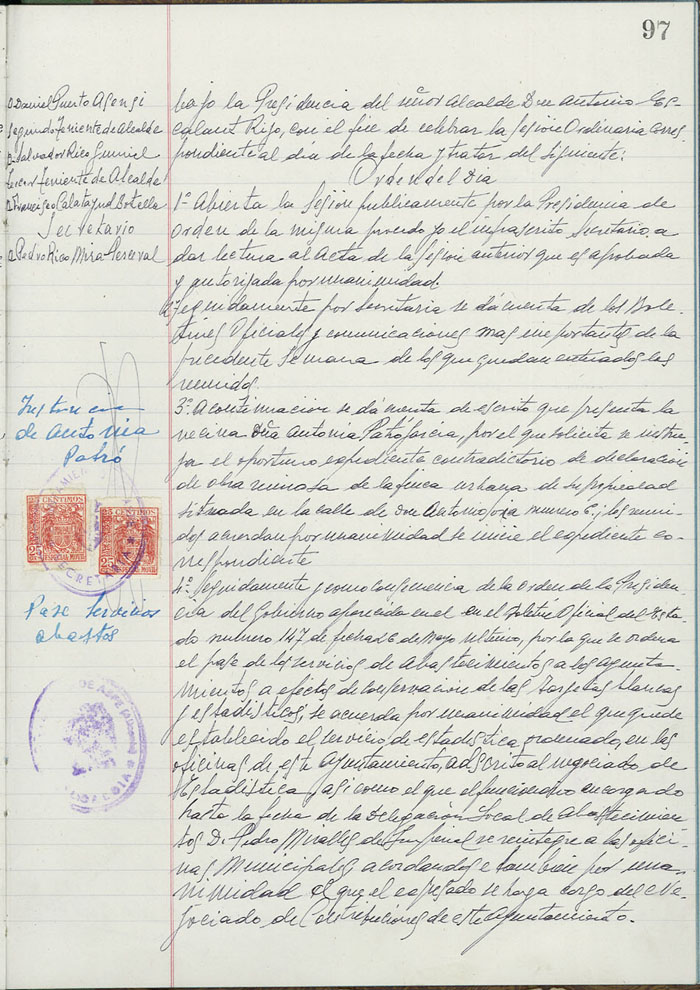 97
D Daniel Puerto Asensi
Segundo Teniente de Alcalde
D. Salvador Rico Gumiel
Tercer Teniente de Alcalde
D. Francisco Calatayud Botella
Secretario
D Pedro Rico Mira-Perceval
bajo la Presidencia del señor Alcalde Don Antonio Es-
calant Rizo, con el fin de celebrar la Sesión Ordinaria corres-
pondiente al día de la fecha y tratar del siguiente:
Orden del Dia
1º Abierta la Sesión publicamente por la Presidencia de
orden de la misma procedo yo el infrascrito Secretario a
dar lectura al Acta de la Sesión anterior que es aprobada
y autorizada por unanimidad.
2º Seguidamente por Secretaria se dá cuenta de los Bole-
tines Oficiales y comunicaciones mas importantes de la
precedente Semana de los que quedan enterados los
reunidos.
Instancia
de Antonia
Patró
3º A continuacion se dá cuenta de escrito que presenta la
vecina Dña Antonia Patró Garcia, por el que solicita se instru-
ya el oportuno expediente contradictorio de declaracion
de obra ruinosa de la finca urbana de su propiedad
situada en la calle de Don Antonio numero 6; los reuni-
dos acuerdan por unanimidad se inicie el expediente co-
rrespondiente
25 CENTIMOS
ESPECIAL MOVIL
25 CENTIMOS
ESPECIAL MOVIL
SECRETARIA
Pase Servicios
abastos
4º Seguidamente y como consecuencia de la Orden de la Presiden-
cia del Gobierno aparecida en el en el Boletin Oficial del Esta-
do numero 147 de fecha 26 de Mayo ultimo, por la que se ordena
el pase de los servicios de Abastecimientos a los ayunta-
mientos a efectos de conservacion de las Tarjetas blancas
y estadisticos, se acuerda por unanimidad el que quede
establecido el servicio de estadistica ordenado, en las
oficinas de este Ayuntamiento, adscrito al negociado de
Estadistica, asi como el que el funcionario encargado
hasta la fecha de la Delegación Local de Abastecimien-
tos D. Pedro Miralles de se reintegre a las ofici-
nas Municipales acordandose tambien por una-
nimidad el que el expresado se haga cargo del Ne-
gociado de Contribuciones de este Ayuntamiento.
DE ASPE (Alicante)